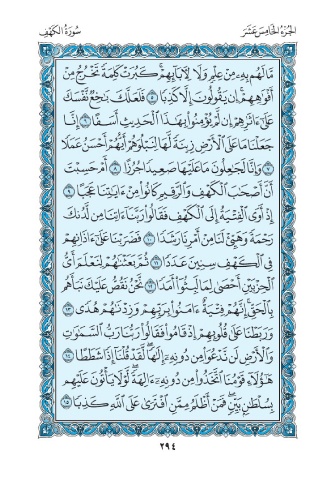 الجزء الخامس عشر
سورة الكهف
مَّا لَهُم بِهِۦ مِنْ عِلْمٍ وَلَا لِءَابَآئِهِمْ ۚ كَبُرَتْ كَلِمَةً تَخْرُجُ مِنْ
أَفْوَٰهِهِمْ ۚ إِن يَقُولُونَ إِلَّا كَذِبًا ٥ فَلَعَلَّكَ بَٰخِعٌ نَّفْسَكَ
عَلَىٰٓ ءَاثَٰرِهِمْ إِن لَّمْ يُؤْمِنُوا۟ بِهَٰذَا ٱلْحَدِيثِ أَسَفًا ٦ إِنَّا
جَعَلْنَا مَا عَلَى ٱلْأَرْضِ زِينَةً لَّهَا لِنَبْلُوَهُمْ أَيُّهُمْ أَحْسَنُ عَمَلًا
٧ وَإِنَّا لَجَٰعِلُونَ مَا عَلَيْهَا صَعِيدًا جُرُزًا ٨ أَمْ حَسِبْتَ
أَنَّ أَصْحَٰبَ ٱلْكَهْفِ وَٱلرَّقِيمِ كَانُوا۟ مِنْ ءَايَٰتِنَا عَجَبًا ٩
إِذْ أَوَى ٱلْفِتْيَةُ إِلَى ٱلْكَهْفِ فَقَالُوا۟ رَبَّنَآ ءَاتِنَا مِن لَّدُنكَ
رَحْمَةً وَهَيِّئْ لَنَا مِنْ أَمْرِنَا رَشَدًا ١٠ فَضَرَبْنَا عَلَىٰٓ ءَاذَانِهِمْ
فِى ٱلْكَهْفِ سِنِينَ عَدَدًا ١١ ثُمَّ بَعَثْنَٰهُمْ لِنَعْلَمَ أَىُّ
ٱلْحِزْبَيْنِ أَحْصَىٰ لِمَا لَبِثُوٓا۟ أَمَدًا ١٢ نَّحْنُ نَقُصُّ عَلَيْكَ نَبَأَهُم
بِٱلْحَقِّ ۚ إِنَّهُمْ فِتْيَةٌ ءَامَنُوا۟ بِرَبِّهِمْ وَزِدْنَٰهُمْ هُدًى ١٣
وَرَبَطْنَا عَلَىٰ قُلُوبِهِمْ إِذْ قَامُوا۟ فَقَالُوا۟ رَبُّنَا رَبُّ ٱلسَّمَٰوَٰتِ
وَٱلْأَرْضِ لَن نَّدْعُوَا۟ مِن دُونِهِۦٓ إِلَٰهًا ۖ لَّقَدْ قُلْنَآ إِذًا شَطَطًا ١٤
هَٰٓؤُلَآءِ قَوْمُنَا ٱتَّخَذُوا۟ مِن دُونِهِۦٓ ءَالِهَةً ۖ لَّوْلَا يَأْتُونَ عَلَيْهِم
بِسُلْطَٰنٍۭ بَيِّنٍ ۖ فَمَنْ أَظْلَمُ مِمَّنِ ٱفْتَرَىٰ عَلَى ٱللَّهِ كَذِبًا ١٥
٢٩٤